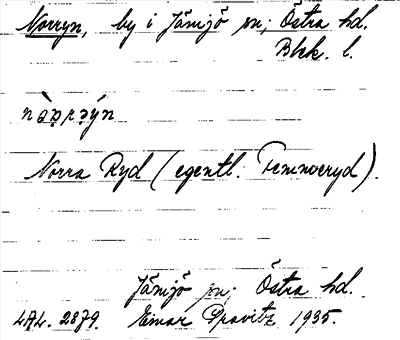 Norryn, by i Jämjö sn; Östra hd.
Blek. l.
nò̤rɐ̤ýn
Norra Ryd (egentl. Femmeryd).
Jämjö sn; Östra hd.
LAL. 2879. Einar Dravitz 1935.